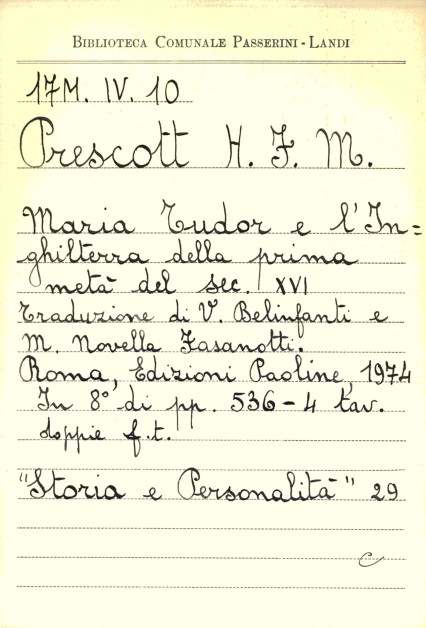 BIBLIOTECA COMUNALE PASSERINI - LANDI
17M. IV. 10
Prescott H. F. M.
Maria Tudor e l'In=
ghilterra della prima
metà del sec. XVI
Traduzione di V. Belinfanti e
M. Novella Fasanotti.
Roma, Edizioni Paoline, 1974
In 8° di pp. 536 - 4 tav.
doppie f.t.
"Storia e Personalità" 29
C